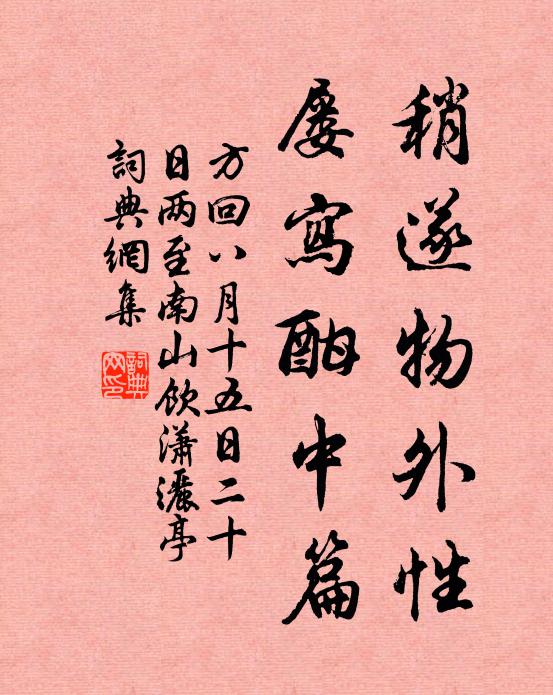 稍遂物外性
屡寫酣中篇
方回八月十五日二十
日两至南山飲瀟灑亭
詞典網集
詞典網印